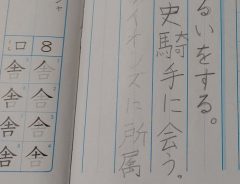 るいをする。
史騎手に会う。
イオンズに所属
8
口
舎
舎
舎
舎
舎
舎